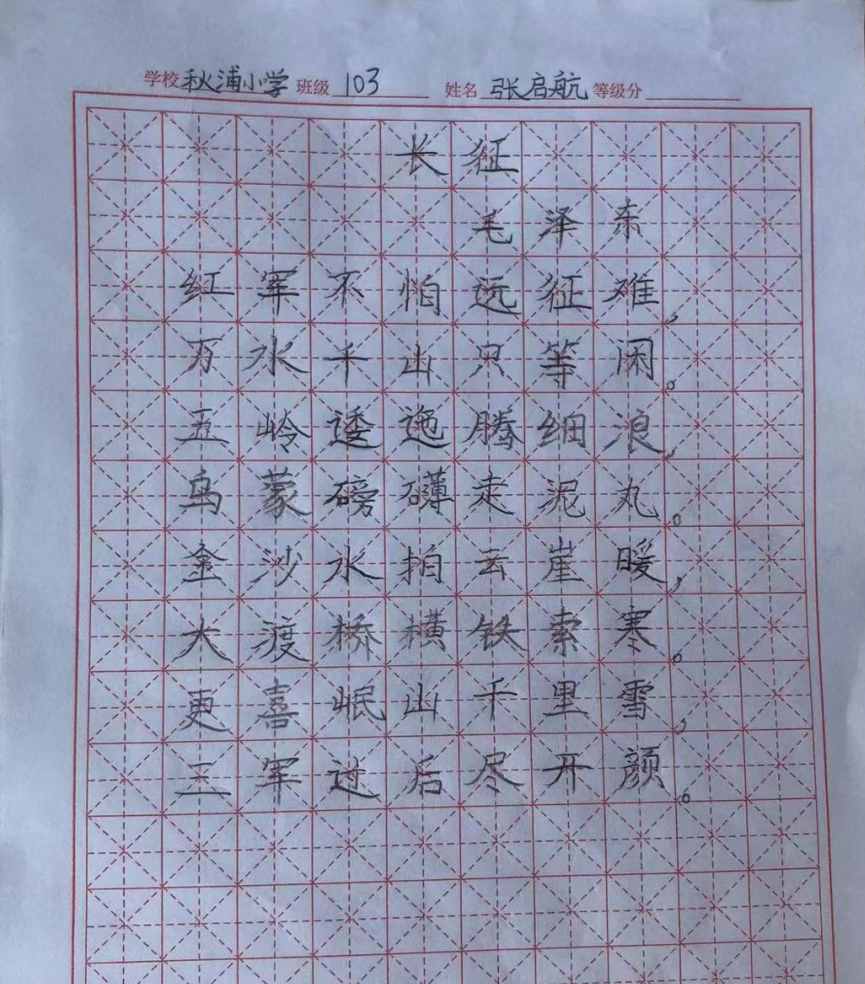 学校 秋浦小学 班级 103 姓名 张启航 等级分
长征
毛泽东
红军不怕远征难,
万水千山只等闲。
五岭逶迤腾细浪,
乌蒙磅礴走泥丸。
金沙水拍云崖暖,
大渡桥横铁索寒。
更喜岷山千里雪,
三军过后尽开颜。